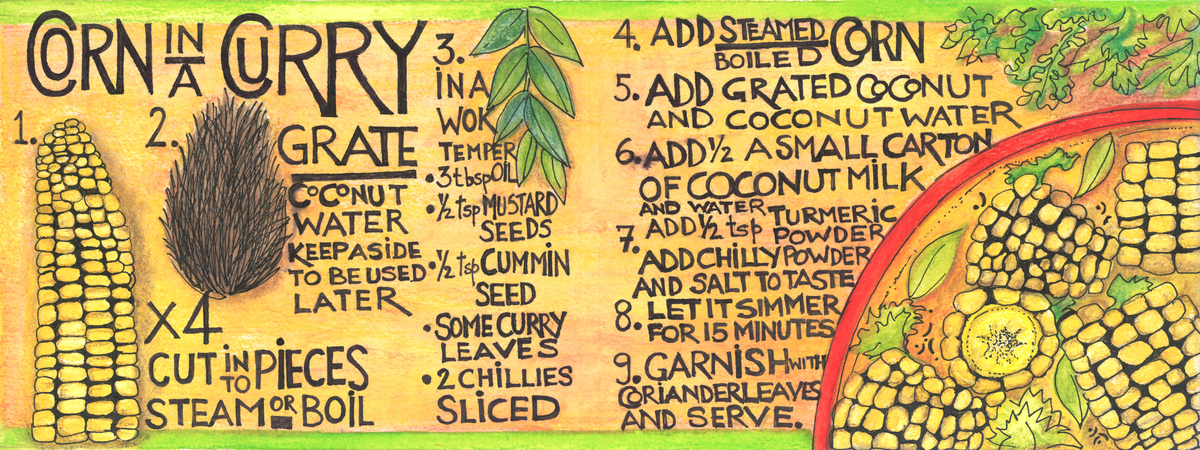 CORN IN A CURRY
1.
X4
CUT IN TO PIECES
STEAM OR BOIL
2.
GRATE
COCONUT
WATER
KEEP ASIDE
TO BE USED
LATER
3.
IN A
WOK
TEMPER
•3tbsp OIL
•½ tsp MUSTARD
SEEDS
•½ tsp CUMMIN
SEED
•SOME CURRY
LEAVES
•2 CHILLIES
SLICED
4. ADD STEAMED BOILED CORN
5. ADD GRATED COCONUT
AND COCONUT WATER
6. ADD ½ A SMALL CARTON
OF COCONUT MILK
AND WATER
7. ADD ½ tsp TURMERIC POWDER
ADD CHILLY POWDER
AND SALT TO TASTE
8. LET IT SIMMER
FOR 15 MINUTES
9. GARNISH WITH
CORIANDER LEAVES
AND SERVE.